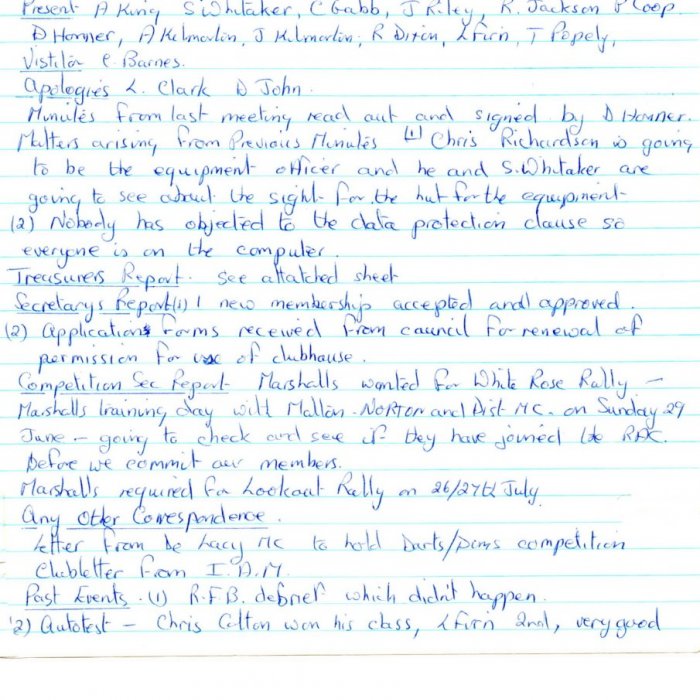 Present A King, S Whitaker, C Gabb, J Riley, R. Jackson P Coop.
D Horner, A Kilmartin, J Kilmartin, R Dixon, L Firn, T Popely,
Visitor C. Barnes.
Apologies L. Clark D John.
Minutes from last meeting read out and signed by D Horner.
Matters arising from Previous Minutes (1) Chris Richardson is going
to be the equipment officer and he and S. Whitaker are
going to see about the sight for the hut for the equipment
(2) Nobody has objected to the data protection clause so
everyone is on the computer.
Treasurers Report. see attatched sheet
Secretarys Report (1) 1 new membership accepted and approved.
(2) Applications forms received from council for renewal of
permission for use of clubhouse.
Competition Sec Report Marshalls wanted for White Rose Rally -
Marshalls training day with Malton. NORTON and Dist MC. on Sunday 29
June - going to check and see if they have joined the RAC.
before we commit our members.
Marshalls required for Lookout Rally on 26/27th July
Any Other Correspondence.
Letter from De Lacy MC to hold Darts/Doms competition
Clubletter from I.A.M.
Past Events. (1) R.F.B. debrief which didn't happen.
(2) Autotest - Chris Cotton won his class, L Firn 2nd, very good